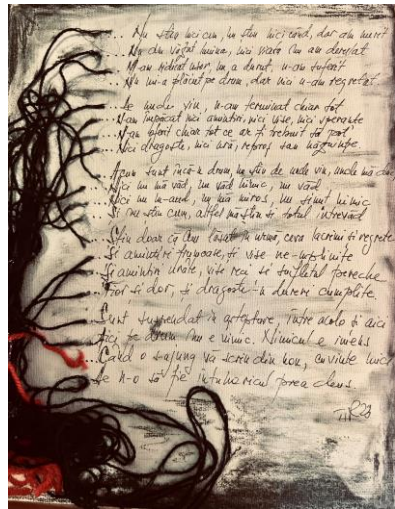 ... Nu știu nici cum, nu știu nici când, dar am murit
... Nu-am văzut lumina, nici vara nu am
... M-am ridicat ușor, nu a durut, n-am suferit
... Nu mi-a plăcut pe drum, dar nici n-am regretat.
... De unde vin, n-am terminat chiar tot
... N-am împăcat nici amintiri, nici vise, nici speranțe
... N-am iubit chiar tot ce ar fi trebuit să pot
... Nici dragoste, nici ură, reproș sau
... Acum sunt încă-n drum, nu știu de unde vin, unde mă duc
... Nici nu mă văd, nu văd nimic, nu văd
... Nici nu m-aud, nu mă miros, nu simt nimic
... Și nu știu cum, altfel mă știu și totul întrevăd
... Știu doar că am lăsat în urmă, ceva lacrimi și regrete
... Și amintiri frumoase, și vise ne-mplinite
... Și amintiri urate, vise reci și sufletul pereche
... Fior și dor, și dragoste-n dureri cumplite.
... Sunt suspendat în așteptare, între acolo și aici
... Aici pe drum nu e nimic. Nimicul e imens
... Când o s-ajung voi scrie din nou, cuvinte mici
... De n-o să fie întunericul prea dens.